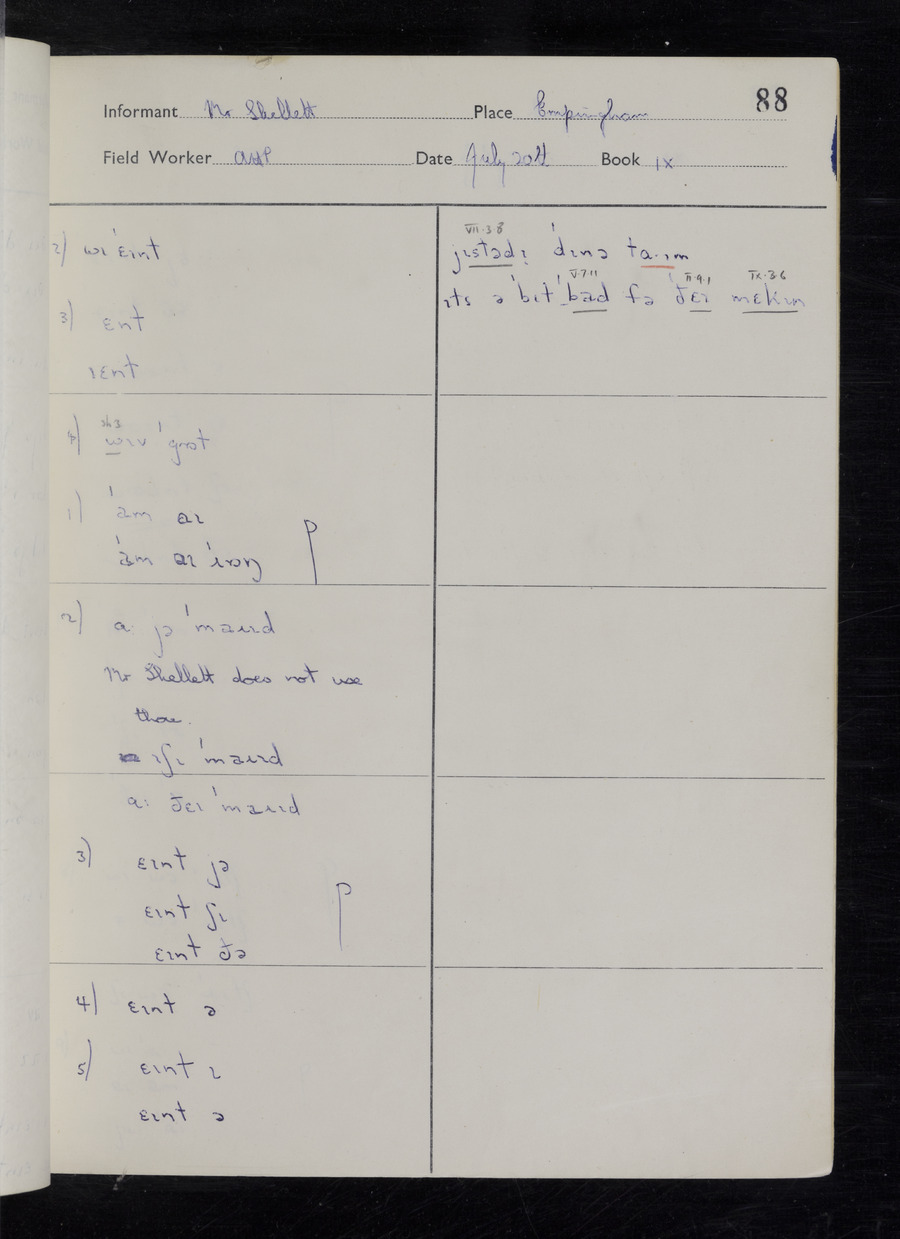 88
Informant Mr Shellett Place Empingham
Field Worker Date July 20th Book IX
2) wɪ ˈɛɪnt
3) ɛnt
ɪɛnt
sh 3
4) wɪv ˈgɒt
1) ˈam aɪ
ˈam aɪ ˈɹɒŋ
2) a: jə ˈmaɪɹɪd
Mr Shellett does not use
thou.
ɪʃɪ ˈmaɪɹɪd
a: ðɛɪ ˈmaɪɹɪd
3) ɛɪnt jə
ɛɪnt ʃɪ
ɛɪnt ðə
4) ɛɪnt ə
5) ɛɪnt ɪ
ɛɪnt ə
VII.3.8
jɪstədɪ ˈdɪnə ta.ɪm
V.7.11 IX.3.6
ɪts ə ˈbɪt ˈbad fə ˈðɛɪ mɛkɪn